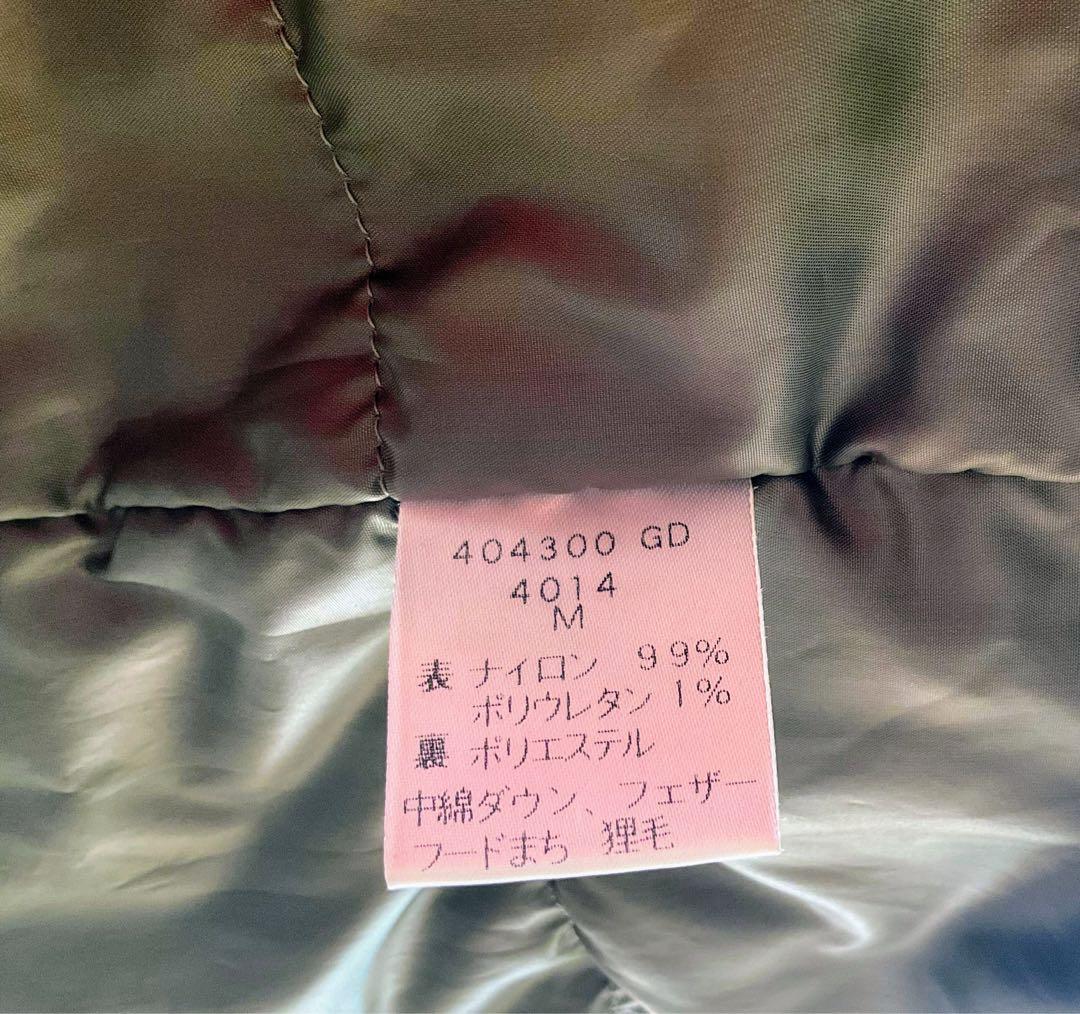 404300 GD
4014
M
表 ナイロン 99%
ポリウレタン 1%
裏 ポリエステル
中綿ダウン、フェザー
フードまち 狸毛